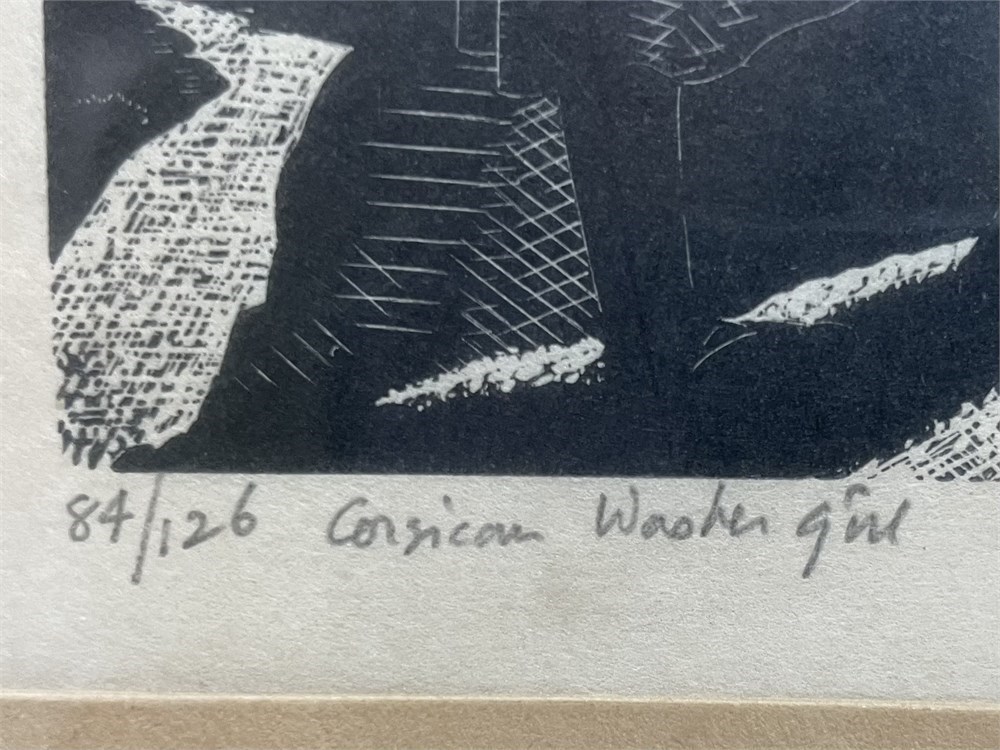 84/126 Corsican Washer girl